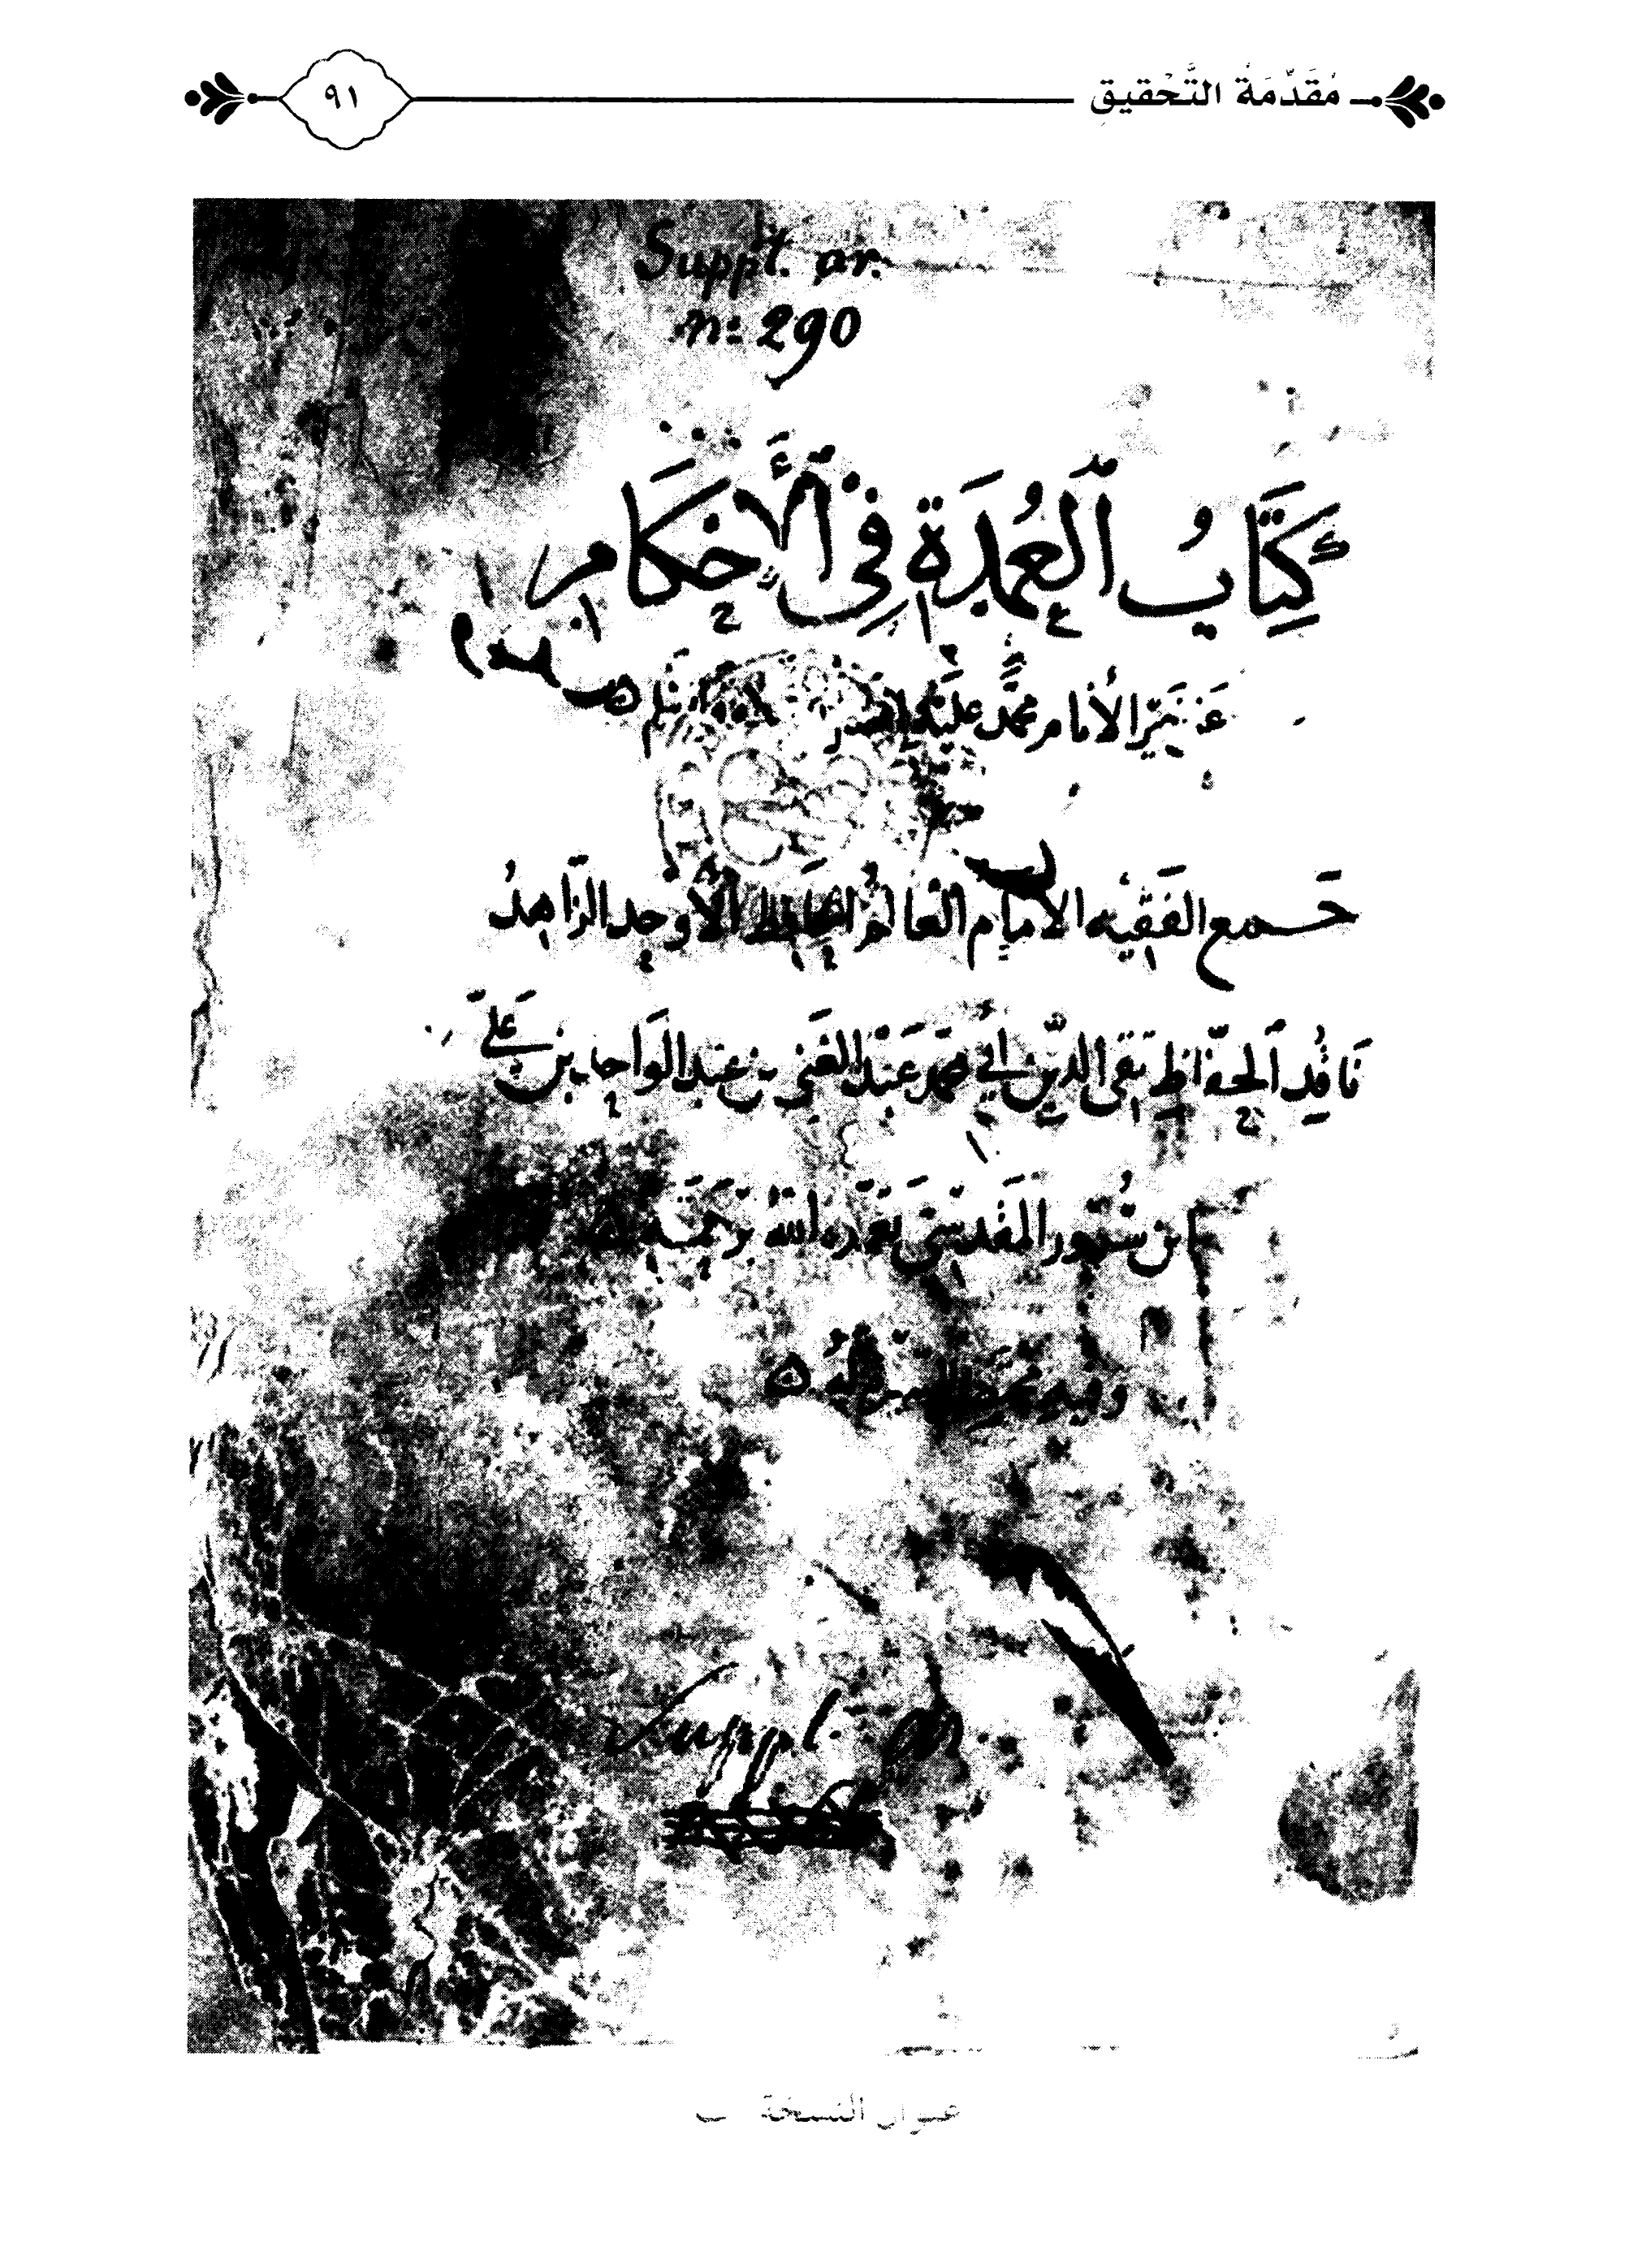 مُقَدِّمَةُ التَّحْقِيقِ
٩١
Suppt. ar.
n: 290
كِتَابُ ٱلعُمدَةِ فِي ٱلأَحكَامِ
عَن خَيرِ الأنام محمَّد عَليه
جَمع الفَقِيه الامام العَالم الحَافِظ الأوحد الزَاهدُ
نَاقد ٱلحفّاظِ تقى الدِّين ابي محمد عَبْد الغَني بن عبد الوَاحد بن عَلي
ابن سُرور المَقدسِيّ تغمّده الله برَحمَته ه
Suppl. ar
عنوان النسخة ب